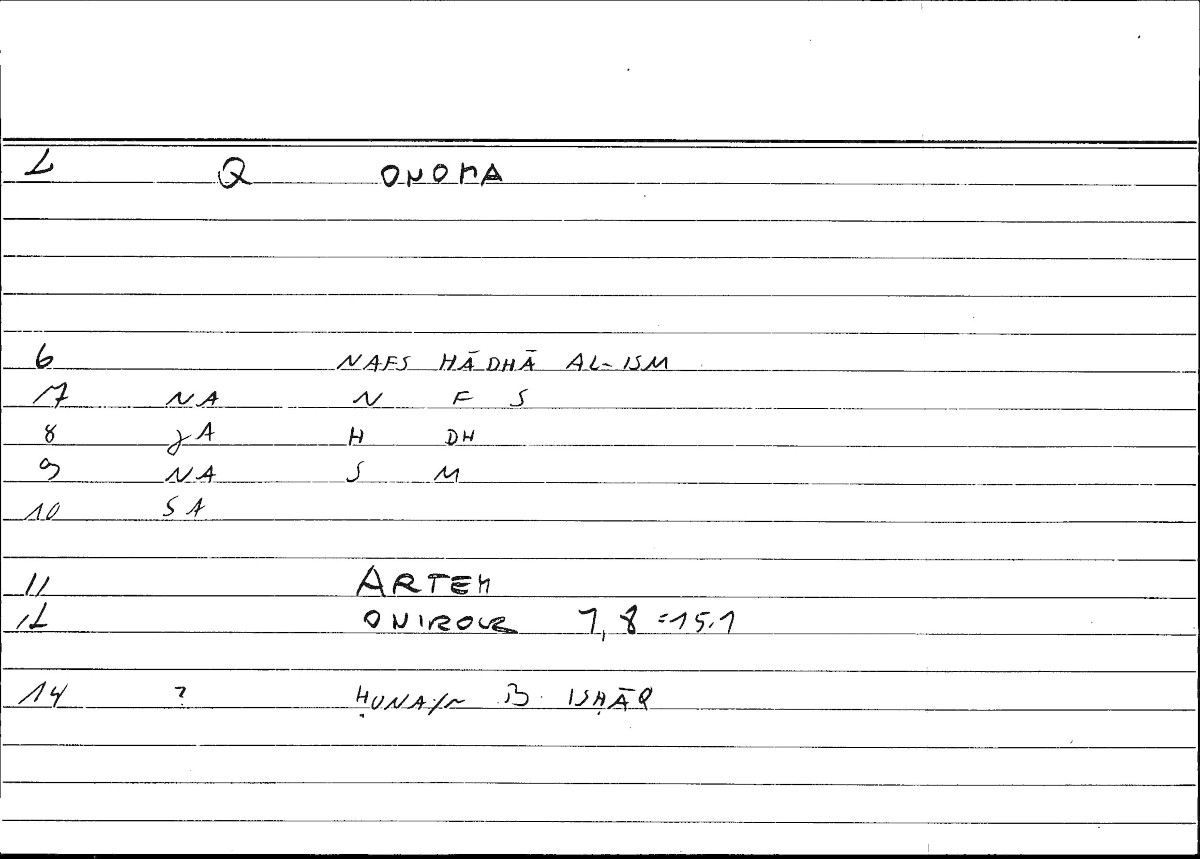 2 Q ONOMA
6 NAFS HĀDHĀ AL-ISM
7 NA N F S
8 γA H DH
9 NA S M
10 SA
11 ARTEM
12 ONIROCR 1, 8 =15.1
14 ? ḤUNAYN B. ISḤĀQ